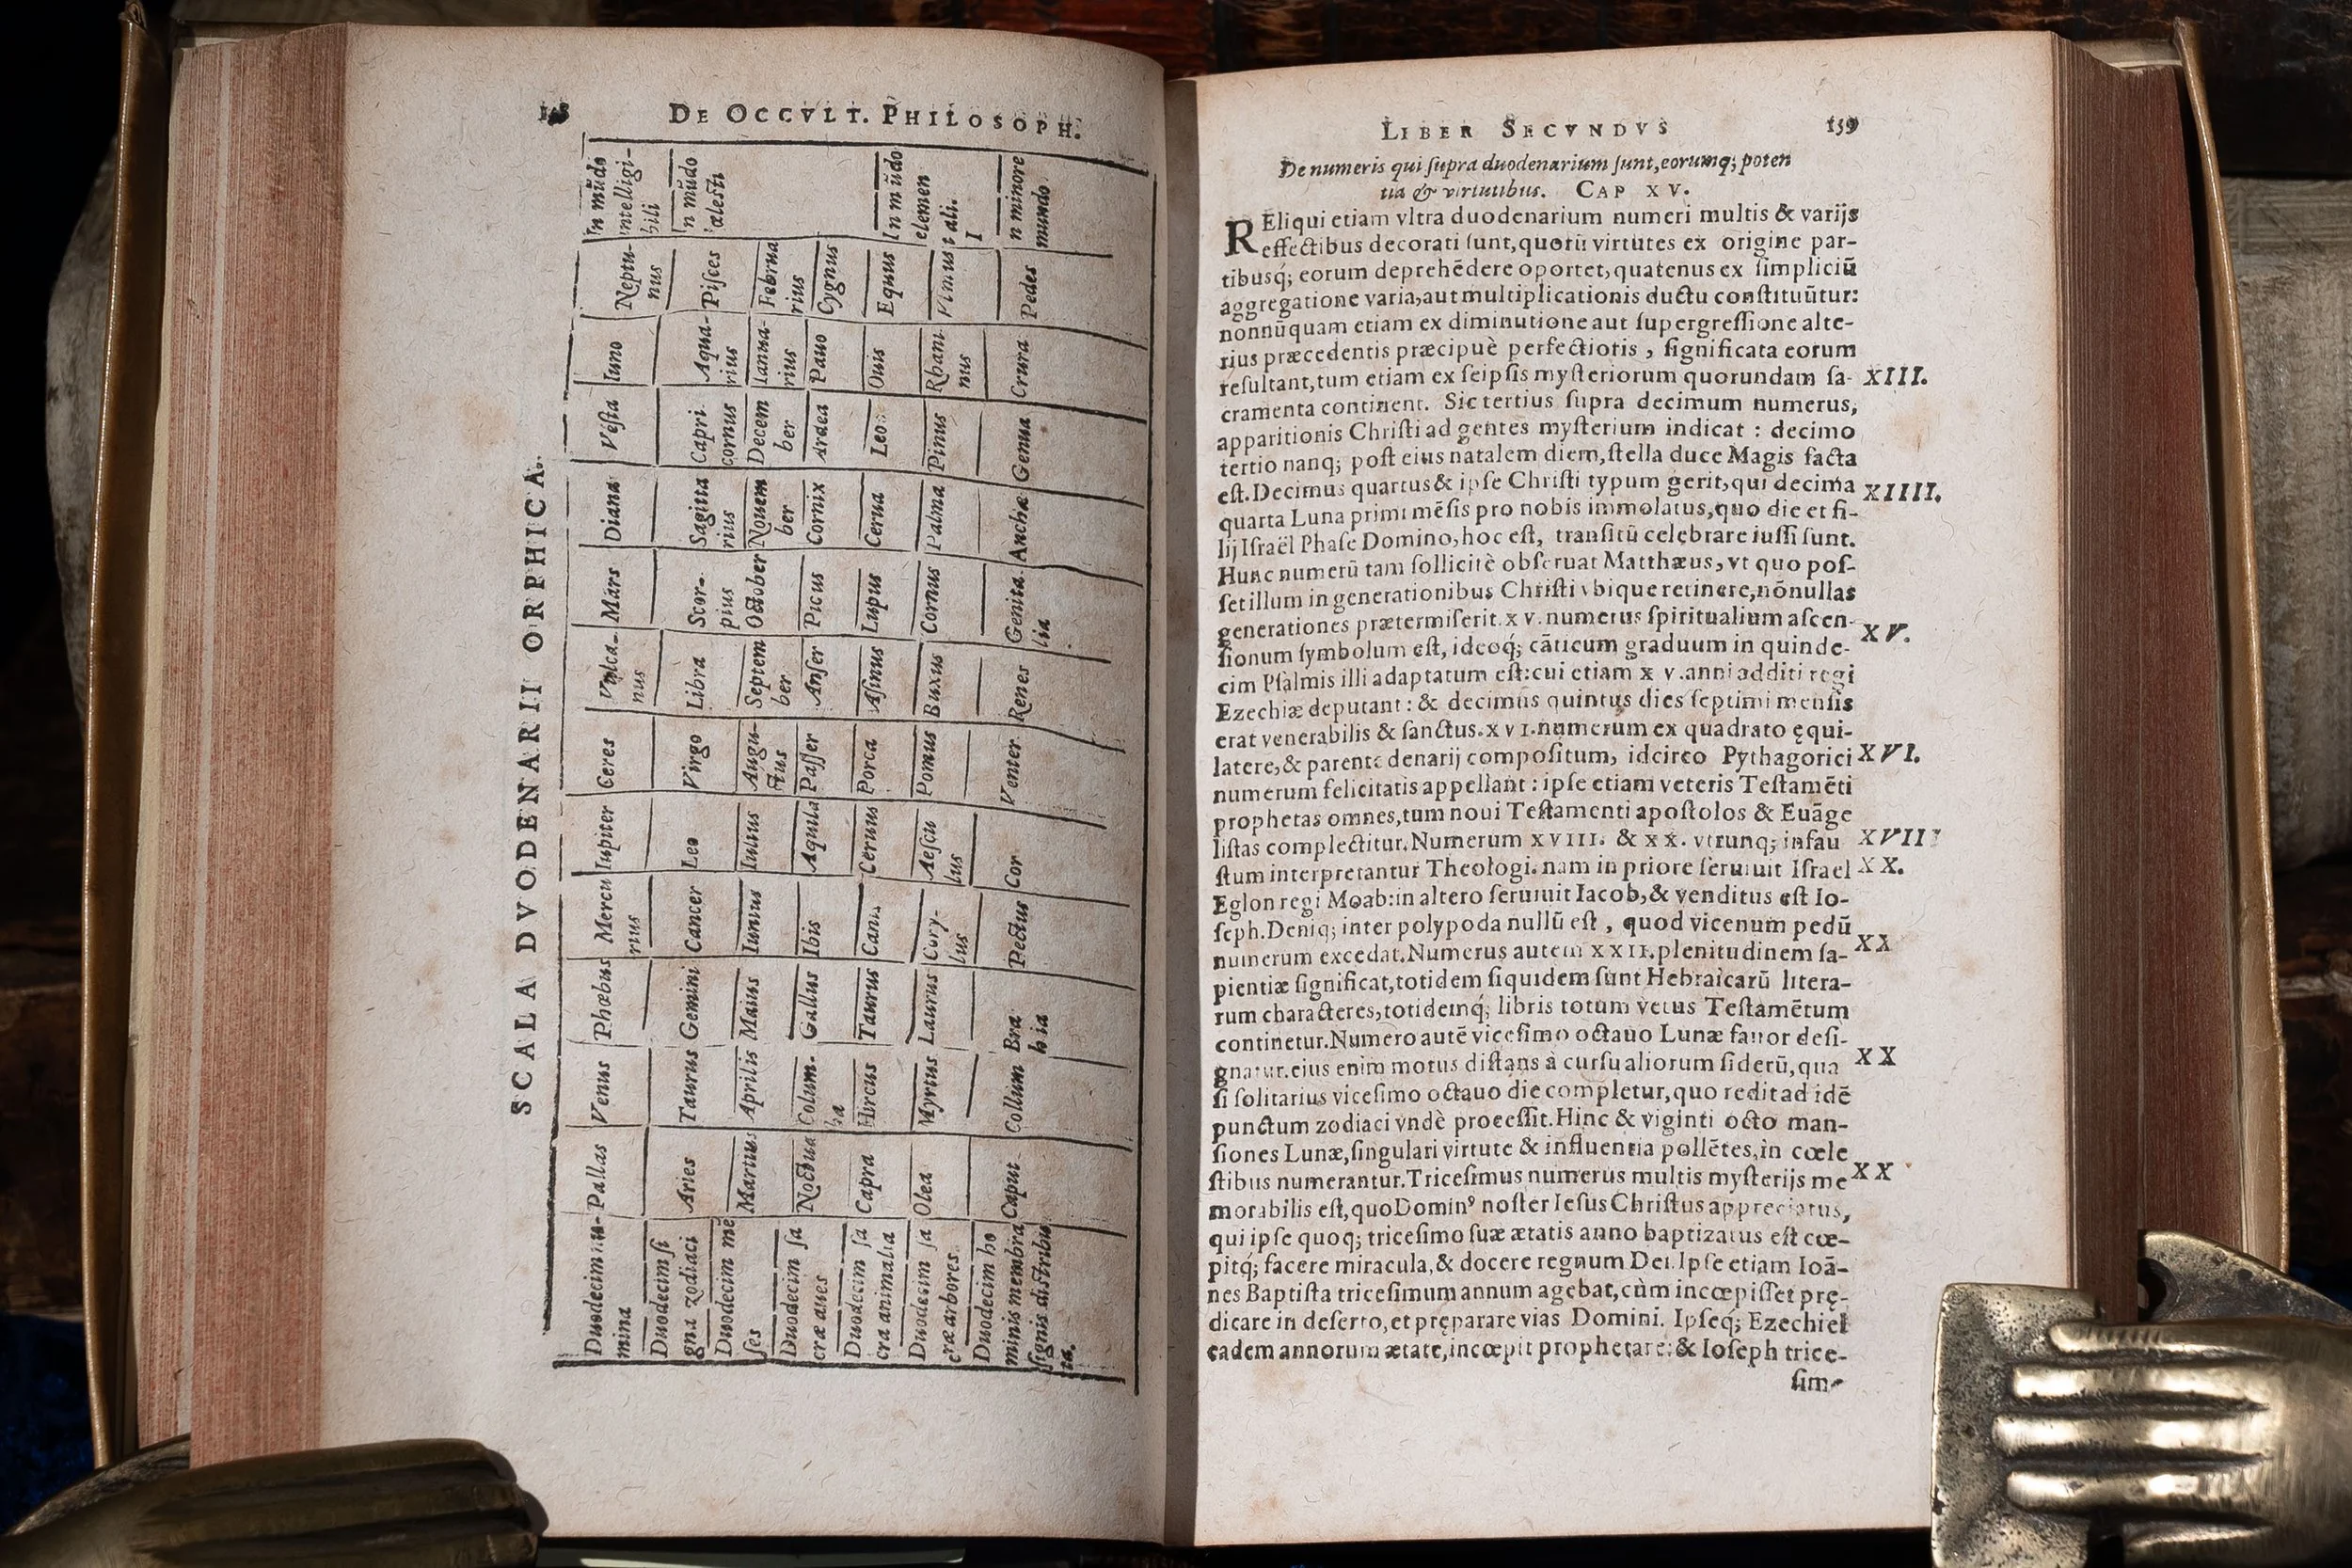 DE OCCVLT. PHILOSOPH.
SCALA DVODENARII ORPHICA.
Duodecim nu-
mina
Pallas
Venus
Phœbus
Mercu
rius
Iupiter
Ceres
Vulca-
nus
Mars
Diana
Vesta
Iuno
Neptu-
nus
In mũdo
intelligi-
bili
Duodecim ſi
gna zodiaci
Aries
Taurus
Gemini
Cancer
Leo
Virgo
Libra
Scor-
pius
Sagitta
rius
Capri
cornus
Aqua-
rius
Piſces
In mũdo
cælesti
Duodecim mẽ
ſes
Martius
Aprilis
Maius
Iunius
Iulius
Augu-
ſtus
Septem
ber
October
Nouem
ber
Decem
ber
Ianua-
rius
Februa
rius
Duodecim ſa
cræ aues
Noctua
Colum-
ba
Gallus
Ibis
Aquila
Paſſer
Anſer
Picus
Cornix
Ardea
Pauo
Cygnus
Duodecim ſa
cra animalia
Capra
Hircus
Taurus
Canis
Ceruus
Porca
Aſinus
Lupus
Cerua
Leo
Ouis
Equus
In mũdo
elemen
tali.
Duodecim ſa
cræ arbores
Olea
Myrtus
Laurus
Cory-
lus
Aeſcu
lus
Pomus
Buxus
Cornus
Palma
Pinus
Rhani
nus
Vlmus
Duodecim ho
minis membra
ſignis diſtribu
ta.
Caput
Collum
Bra
hia
Pectus
Cor
Venter
Renes
Genita
lia
Anchæ
Genua
Crura
Pedes
I
n minore
mundo
LIBER SECVNDVS 159
De numeris qui ſupra duodenarium ſunt, eorumq; poten
tia & virtutibus. CAP XV.
REliqui etiam vltra duodenarium numeri multis & varijs
effectibus decorati ſunt, quorũ virtutes ex origine par-
tibusq́; eorum deprehẽdere oportet, quatenus ex ſimpliciũ
aggregatione varia, aut multiplicationis ductu conſtituũtur:
nonnũquam etiam ex diminutione aut ſupergreſſione alte-
rius præcedentis præcipuè perfectiotis, ſignificata eorum
reſultant, tum etiam ex ſeipſis myſteriorum quorundam ſa- XIII.
cramenta continent. Sic tertius ſupra decimum numerus,
apparitionis Chriſti ad gentes myſterium indicat : decimo
tertio nanq; poſt eius natalem diem, ſtella duce Magis facta
eſt. Decimus quartus & ipſe Chriſti typum gerit, qui decima XIIII.
quarta Luna primi mẽſis pro nobis immolatus, quo die et fi-
lij Iſraël Phaſe Domino, hoc eſt, tranſitũ celebrare iuſſi ſunt.
Hunc numerũ tam ſollicitè obſeruat Matthæus, vt quo poſ-
ſet illum in generationibus Chriſti vbique retinere, nõnullas
generationes prætermiſerit. xv. numerus ſpiritualium aſcen- XV.
ſionum ſymbolum eſt, ideoq́; cãticum graduum in quinde-
cim Pſalmis illi adaptatum eſt: cui etiam xv. anni additi regi
Ezechiæ deputant: & decimus quintus dies ſeptimi menſis
erat venerabilis & ſanctus. xvi. numerum ex quadrato ęqui-
latere, & parente denarij compoſitum, idcirco Pythagorici XVI.
numerum felicitatis appellant : ipſe etiam veteris Teſtamẽti
prophetas omnes, tum noui Teſtamenti apoſtolos & Euãge
liſtas complectitur. Numerum XVIII. & XX. vtrunq; infau XVIII
ſtum interpretantur Theologi. nam in priore ſeruiuit Iſrael XX.
Eglon regi Moab: in altero ſeruiuit Iacob, & venditus eſt Io-
ſeph. Deniq; inter polypoda nullũ eſt, quod vicenum pedũ
numerum excedat. Numerus autem XXII. plenitudinem ſa- XX
pientiæ ſignificat, totidem ſiquidem ſunt Hebraicarũ litera-
rum characteres, totidemq́; libris totum vetus Teſtamẽtum
continetur. Numero autẽ viceſimo octauo Lunæ fauor deſi-
gnatur. eius enim motus diſtans à curſu aliorum ſiderũ, qua XX
ſi ſolitarius viceſimo octauo die completur, quo redit ad idẽ
punctum zodiaci vndè proceſſit. Hinc & viginti octo man-
ſiones Lunæ, ſingulari virtute & influentia pollẽtes, in cœle
ſtibus numerantur. Triceſimus numerus multis myſterijs me XX
morabilis eſt, quo Dominꝰ noſter Ieſus Chriſtus appreciatus,
qui ipſe quoq; triceſimo ſuæ ætatis anno baptizatus eſt cœ-
pitq́; facere miracula, & docere regnum Dei. Ipſe etiam Ioã-
nes Baptiſta triceſimum annum agebat, cùm incœpiſſet prę-
dicare in deſerto, et pręparare vias Domini. Ipſeq́; Ezechiel
eadem annorum ætate, incœpit prophetare: & Ioſeph trice-
ſim-